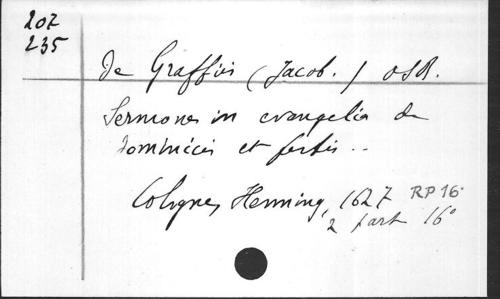 207
235
De Graffiis (Jacob.) OSB.
Sermones in evangelia de
dominicis et festis ..
Cologne, Henning, 1627 RP 16
2 part 16°